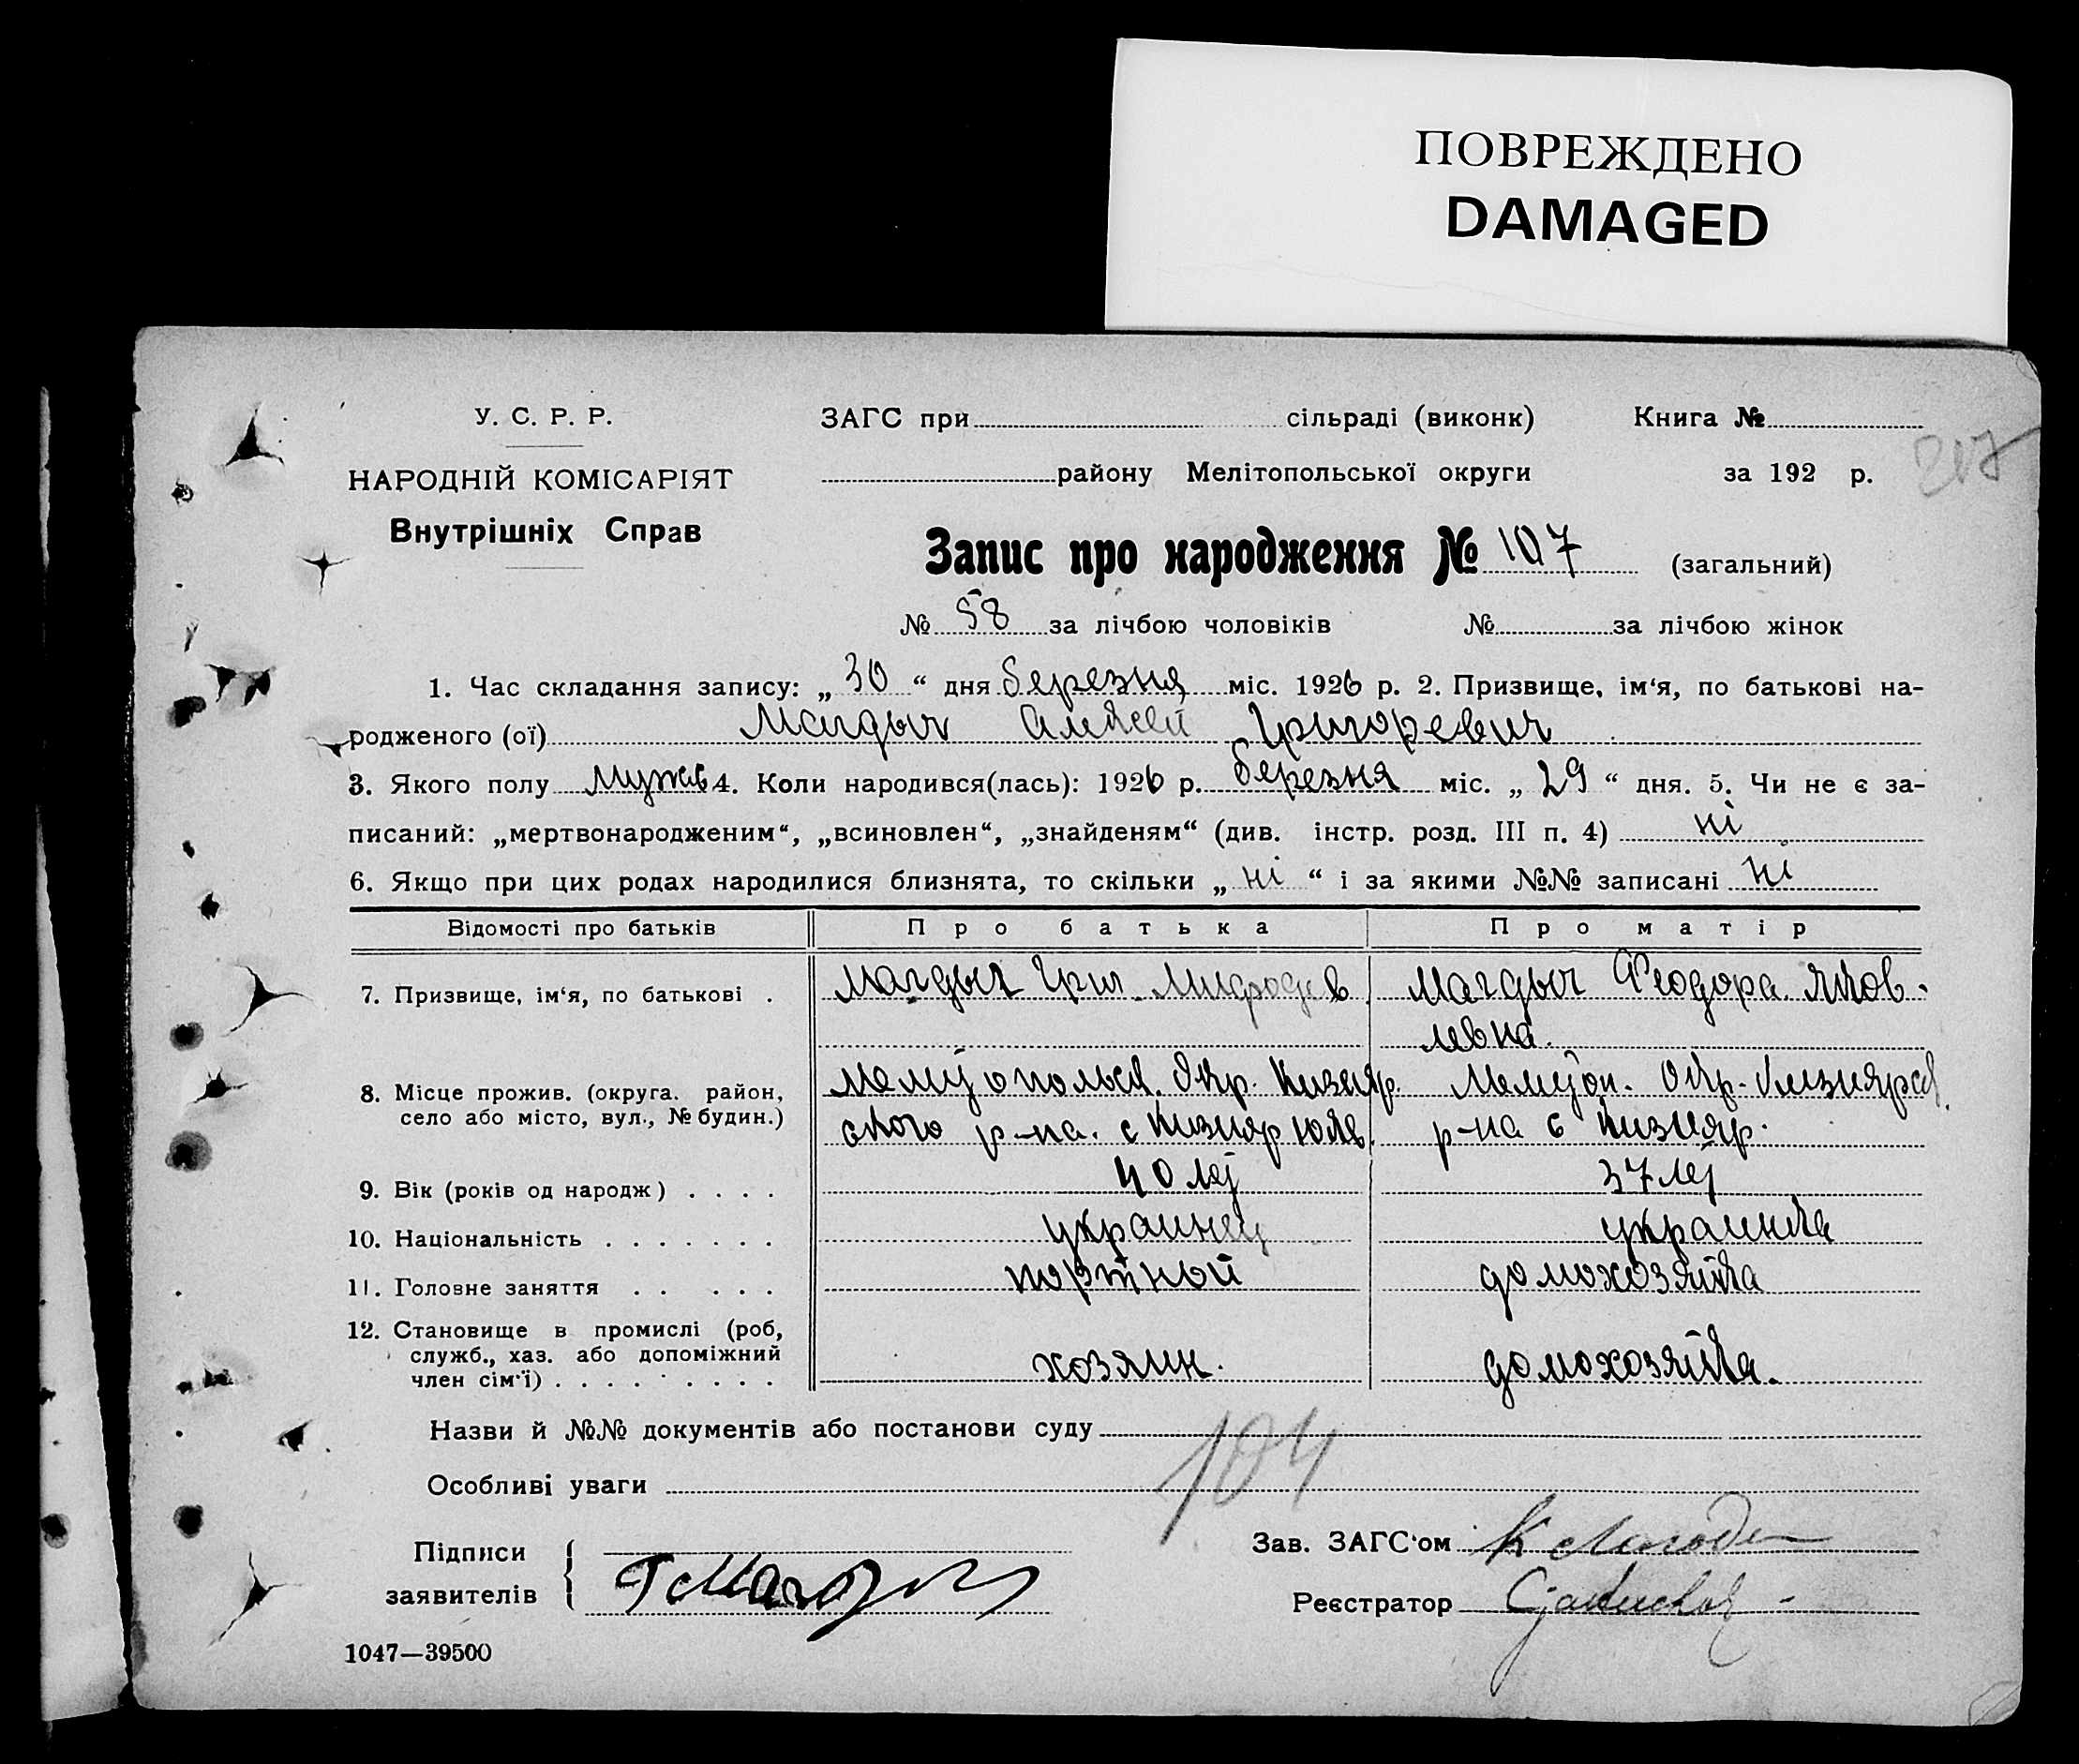 ПОВРЕЖДЕНО
DAMAGED
У. С. Р. Р.
ЗАГС при сільраді (виконк) Книга №
207
НАРОДНІЙ КОМІСАРІЯТ
району Мелітопольської округи за 192 р.
Внутрішніх Справ
Запис про народження № 107 (загальний)
№ 58 за лічбою чоловіків № за лічбою жінок
1. Час складання запису: „30“ дня березня міс. 1926 р. 2. Призвище, ім‘я, по батькові на-
родженого (ої) Магдыч Алексей Григоревич
3. Якого полу мужск 4. Коли народився(лась): 1926 р. березня міс. „29“ дня. 5. Чи не є за-
писаний: „мертвонародженим“, „всиновлен“, „знайденям“ (див. інстр. розд. III п. 4) ні
6. Якщо при цих родах народилися близнята, то скільки „ні“ і за якими №№ записані ні
Відомості про батьків Про батька Про матір
7. Призвище, ім‘я, по батькові . Магдыч Григ. Мифодев Магдыч Феодора Яков-
левна.
8. Місце прожив. (округа. район, Мелитопольск. Окр. Кизияр. Мелитоп. Окр. Кизиярск
село або місто, вул., № будин.) ского р-на. с Кизияр р-на с Кизияр.
9. Вік (років од народж) . . . . 40 лет 37 лет
10. Національність . . . . . . . украинец украинка
11. Головне заняття . . . . . портной домохозяйка
12. Становище в промислі (роб,
служб., хаз. або допоміжний
член сім‘ї) . . . . . . . . . хозяин. домохозяйка.
Назви й №№ документів або постанови суду
104
Особливі уваги
Підписи
Зав. ЗАГС‘ом
заявителів Г Магдыч
Реєстратор
1047—39500